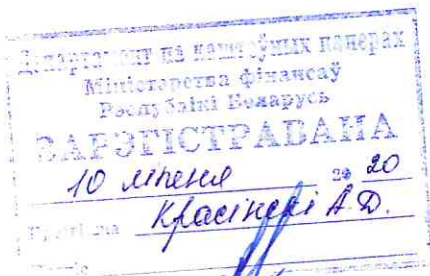 Дэпартамент па каштоўных паперах
Міністэрства фінансаў
Рэспублікі Беларусь
ЗАРЭГІСТРАВАНА
10 ліпеня 20 20
Красінскі А.D.